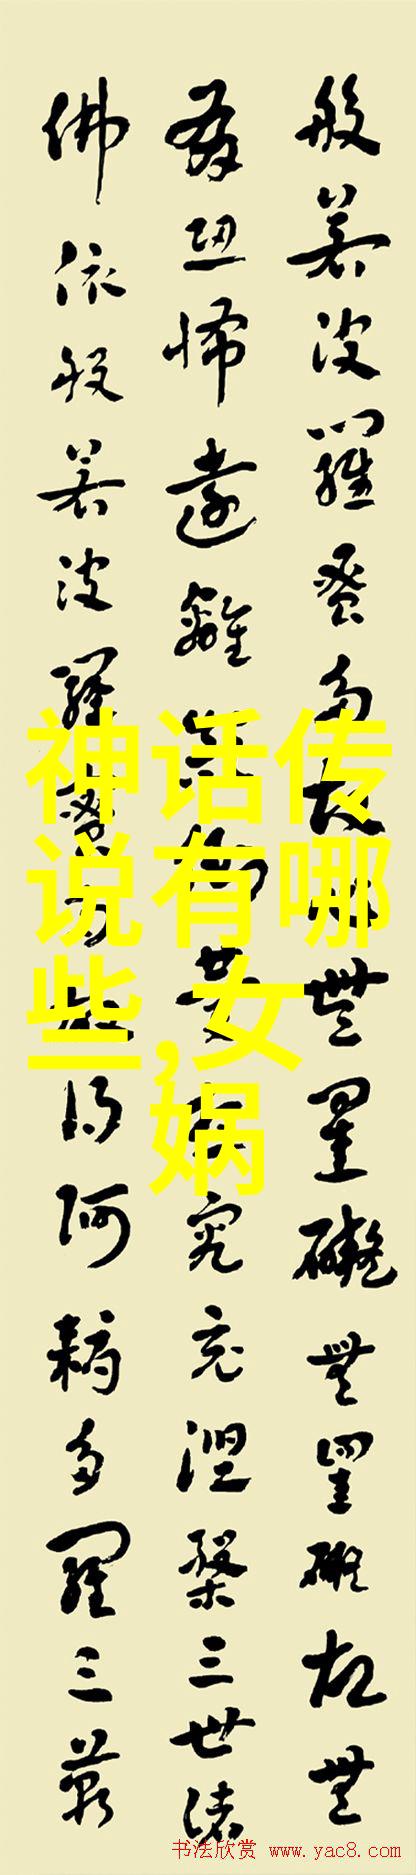 般若波羅蜜多故心無罣礙無罣礙故無
有恐怖遠離顛倒夢想究竟涅槃三世諸
佛依般若波羅蜜多故得阿耨多羅三藐
神话传
说有哪
些,女
娲
书法欣赏 www.yac8.com